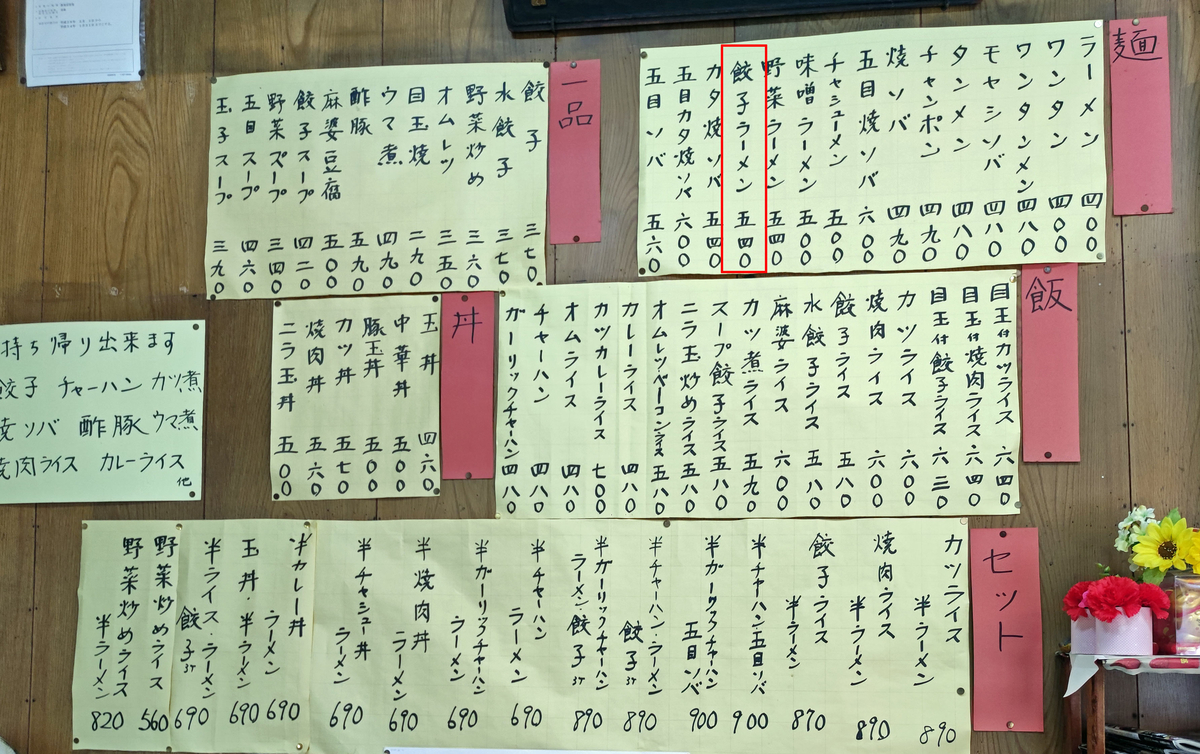 麺
ラーメン 四〇〇
ワンタン 四〇〇
ワンタンメン 四八〇
モヤシソバ 四八〇
タンメン 四八〇
チャンポン 四九〇
焼ソバ 四九〇
五目焼ソバ 六〇〇
チャシューメン 五〇〇
味噌ラーメン 五〇〇
野菜ラーメン 五四〇
餃子ラーメン 五四〇
カタ焼ソバ 五四〇
五目カタ焼ソバ 六〇〇
五目ソバ 五六〇
一品
餃子 三七〇
水餃子 三七〇
野菜炒め 三六〇
オムレツ 三五〇
目玉焼 二九〇
ウマ煮 四九〇
酢豚 五九〇
麻婆豆腐 五〇〇
餃子スープ 四二〇
野菜スープ 三四〇
五目スープ 四六〇
玉子スープ 三九〇
飯
目玉付カツライス 六四〇
目玉付焼肉ライス 六四〇
目玉付餃子ライス 六二〇
カツライス 六〇〇
焼肉ライス 六〇〇
餃子ライス 五八〇
水餃子ライス 五八〇
麻婆ライス 六〇〇
カツ煮ライス 五九〇
スープ餃子ライス 五八〇
ニラ玉炒めライス 五八〇
オムレツベーコンライス 五八〇
カレーライス 四八〇
カツカレーライス 七〇〇
オムライス 四八〇
チャーハン 四八〇
ガーリックチャーハン 四八〇
丼
玉丼 四六〇
中華丼 五〇〇
豚玉丼 五〇〇
カツ丼 五七〇
焼肉丼 五六〇
ニラ玉丼 五〇〇
持ち帰り出来ます
餃子 チャーハン カツ煮
焼ソバ 酢豚 ウマ煮
焼肉ライス カレーライス
他
セット
カツライス 半ラーメン 890
焼肉ライス 半ラーメン 890
餃子ライス 半ラーメン 870
半チャーハン 五目ソバ 900
半ガーリックチャーハン 五目ソバ 900
半チャーハン・ラーメン 餃子3ケ 890
半ガーリックチャーハン ラーメン・餃子3ケ 890
半チャーハン ラーメン 690
半ガーリックチャーハン ラーメン 690
半焼肉丼 ラーメン 690
半チャシュー丼 ラーメン 690
半カレー丼 ラーメン 690
玉丼・半ラーメン 690
半ライス・ラーメン 餃子3ケ 690
野菜炒めライス 560
野菜炒めライス 半ラーメン 820